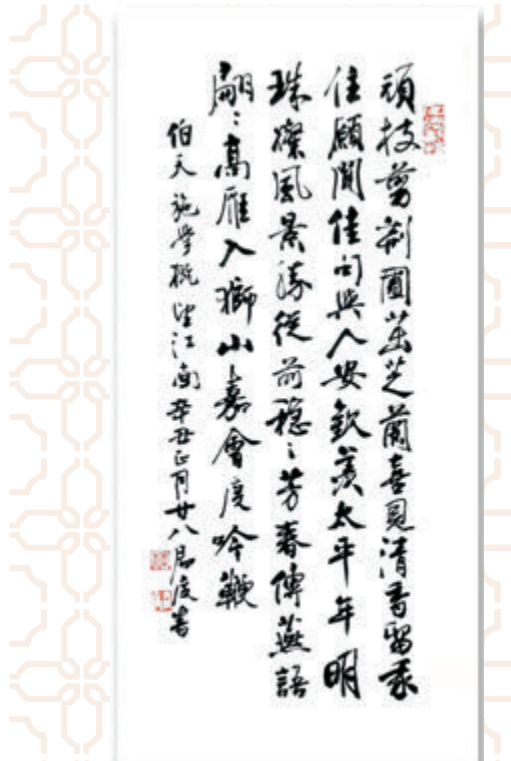 頑技剪荊圃茁芝蘭喜見清香留永
住願聞佳句與人安欽羨太平年明
珠璨風景勝從前穩〻芳春傳燕語
翩〻高雁入獅山嘉會度吟鞭
伯天施學概望江南辛丑正月廿八局度書